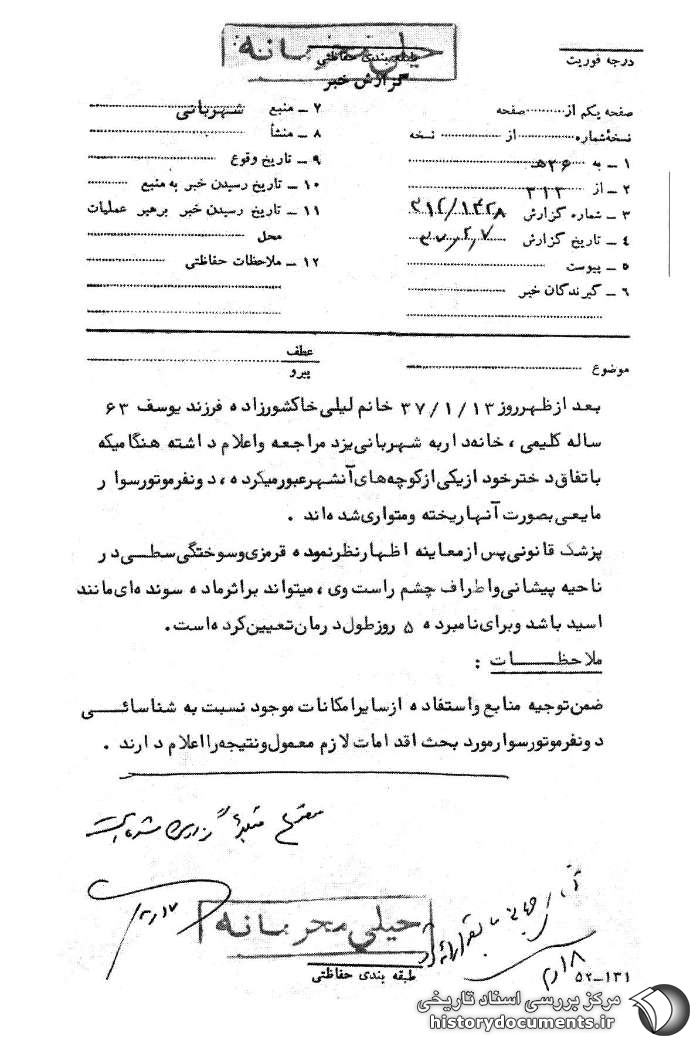 خیلی محرمانه
طبقه بندی حفاظتی
درجه فوریت
گزارش خبر
صفحه یکم از ........ صفحه
نسخه‌شماره ........ از ........ نسخه
۱ ــ به ۲۶ هـ
۲ ــ از ۳۱۲
۳ ــ شماره گزارش ۳۱۲/۱۳۲۸
۴ ــ تاریخ گزارش
۵ ــ پیوست
۶ ــ گیرندگان خبر
۷ ــ منبع شهربانی
۸ ــ منشأ
۹ ــ تاریخ وقوع
۱۰ ــ تاریخ رسیدن خبر به منبع
۱۱ ــ تاریخ رسیدن خبر برهبر عملیات
محل
۱۲ ــ ملاحظات حفاظتی
موضوع
عطف
پیرو
بعد ازظهرروز ۳۷/۱/۱۳ خانم لیلی خاکشورزاده فرزند یوسف ۶۳
ساله کلیمی ، خانه‌دار به شهربانی یزد مراجعه واعلام داشته هنگامیکه
باتفاق دخترخود ازیکی ازکوچه‌های آنشهرعبورمیکرده ، دونفرموتورسوار
مایعی بصورت آنهاریخته ومتواری شده‌اند .
پزشک قانونی پس ازمعاینه اظهارنظرنموده قرمزی وسوختگی سطحی در
ناحیه پیشانی واطراف چشم راست وی ، میتواند براثرماده سوزنده‌ای مانند
اسید باشد وبرای نامبرده ۵ روزطول درمان تعیین کرده است .
ملاحظـــات :
ضمن توجیه منابع واستفاده ازسایرامکانات موجود نسبت به شناسائــی
دونفرموتورسوارمورد بحث اقدامات لازم معمول ونتیجه رااعلام دارند .
خیلی محرمانه
طبقه بندی حفاظتی
۵۲-۱۳۱
مرکز بررسی اسناد تاریخی
historydocuments.ir